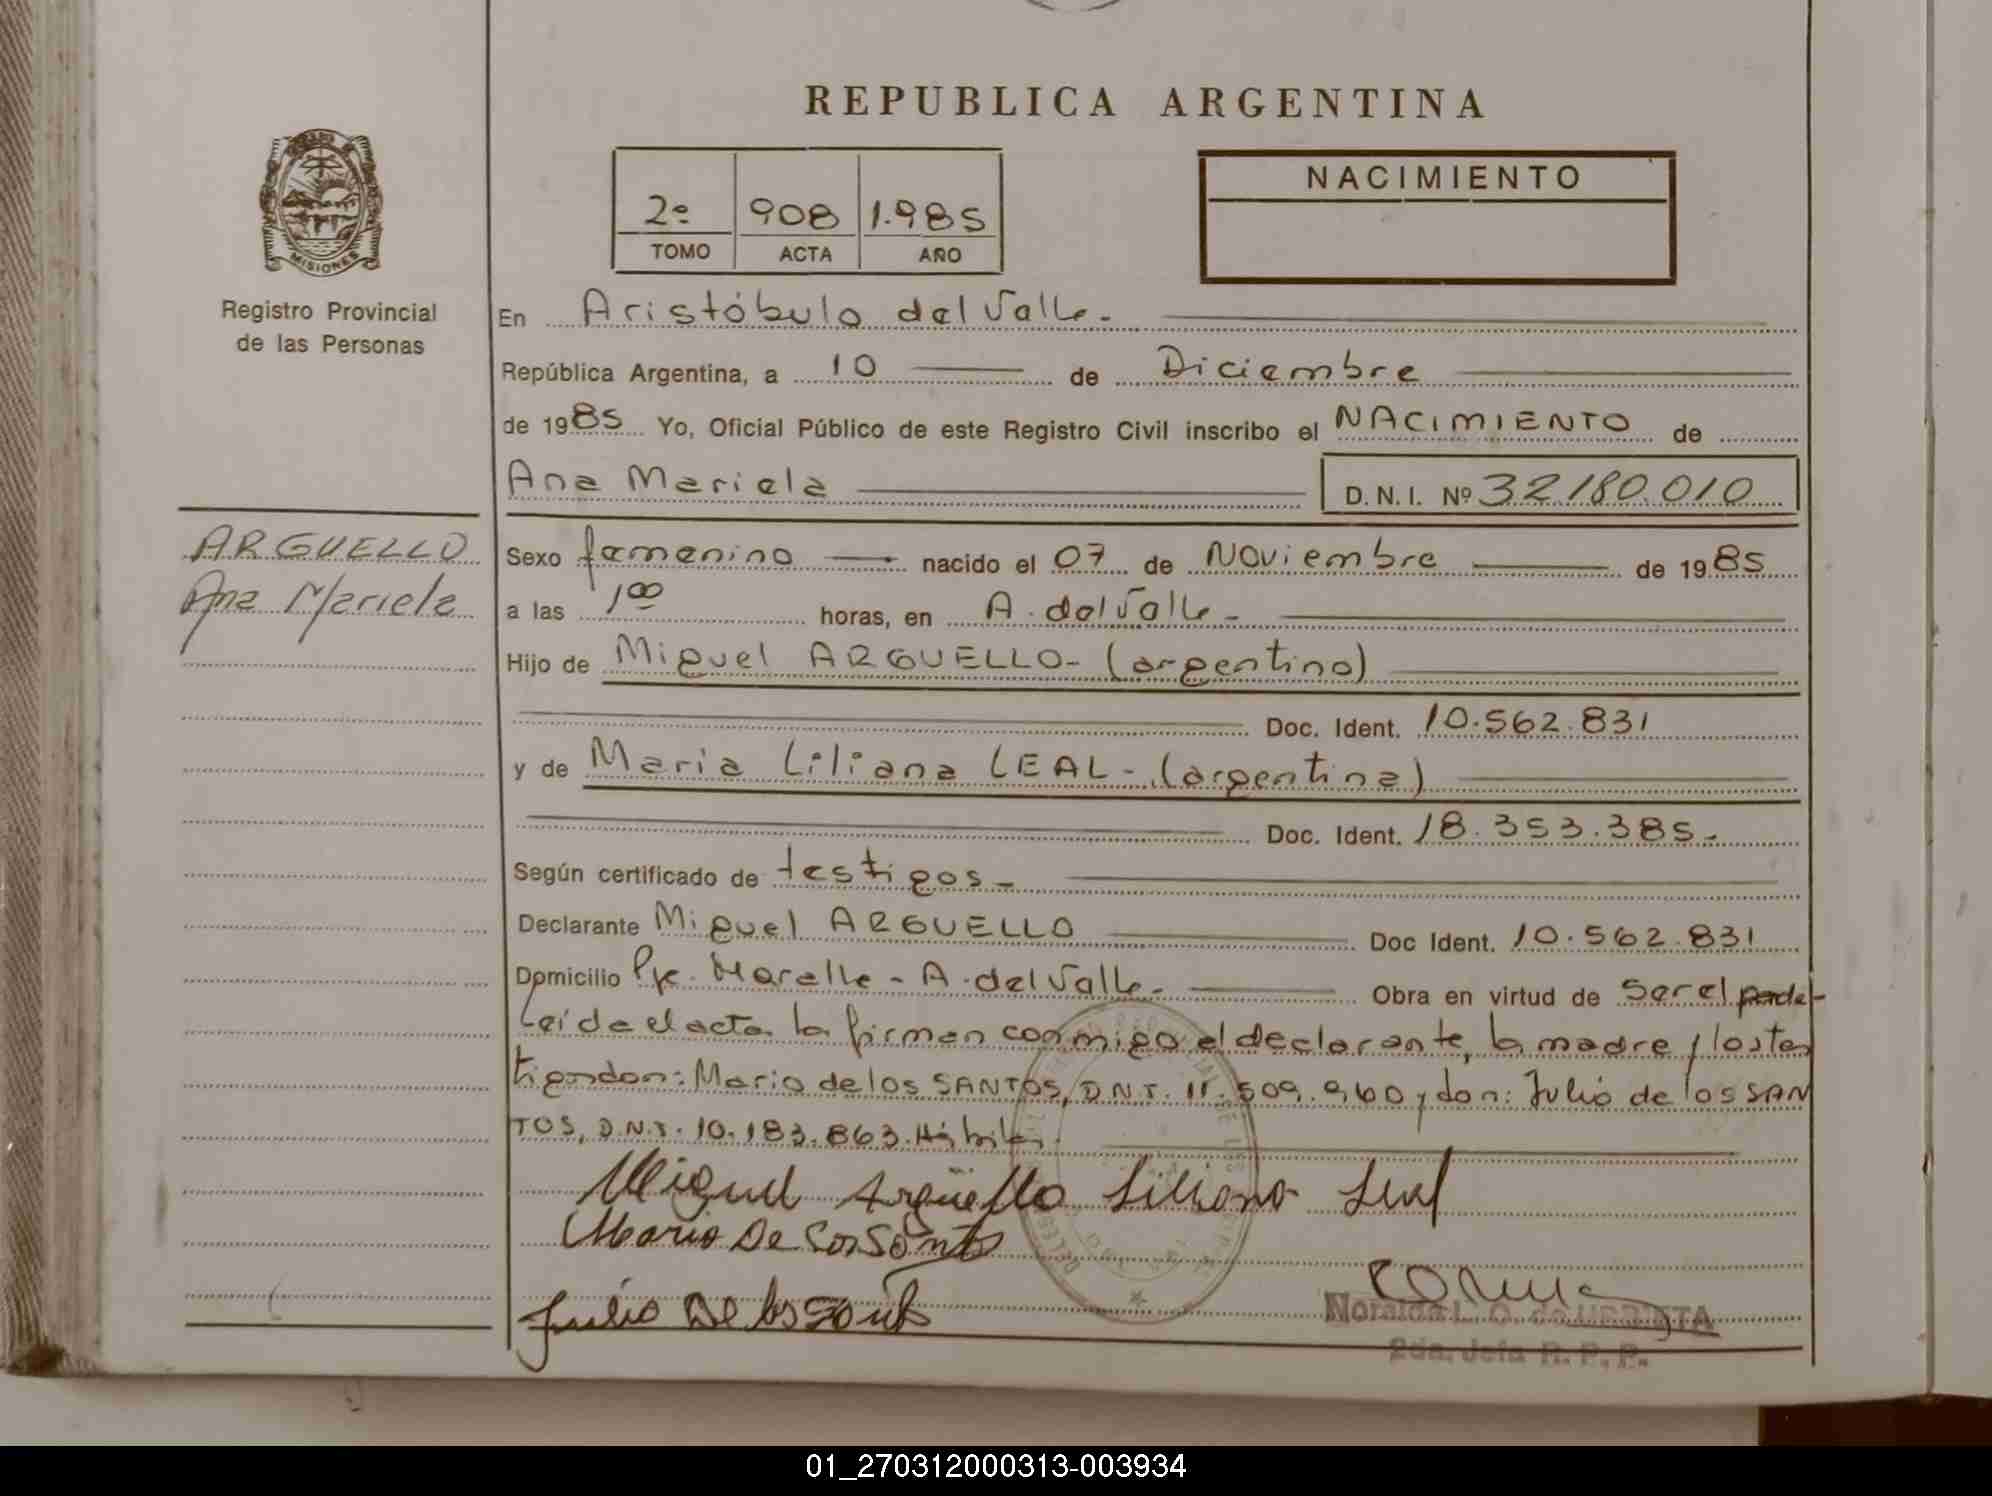 REPUBLICA ARGENTINA
NACIMIENTO
2º 908 1.985
TOMO ACTA AÑO
MISIONES
Registro Provincial
de las Personas
En Aristóbulo del Valle.-
República Argentina, a 10 de Diciembre
de 1985 Yo, Oficial Público de este Registro Civil inscribo el NACIMIENTO de
Ana Mariela D.N.I. Nº 32180.010
ARGUELLO
Ana Mariela
Sexo femenino nacido el 07 de Noviembre de 1985
a las 1,00 horas, en A. del Valle-
Hijo de Miguel ARGUELLO- (argentino)
Doc. Ident. 10.562.831
y de Maria Liliana LEAL- (argentina)
Doc. Ident. 18.353.385-
Según certificado de testigos-
Declarante Miguel ARGUELLO Doc Ident. 10.562.831
Domicilio Pje. - A. del Valle- Obra en virtud de ser el
Leída el acta la firman conmigo el declarante, la madre y los tes
tigos don: Mario de los SANTOS, D.N.I. 11.509.960 y don: Julio de los SAN
TOS, D.N.I. 10.183.863. Hábiles.
Miguel Argüello Liliana Leal
Mario De Los Santos
Julio De los Santos
Noralda L. O. de URRUTA
2da. Jefa R. P. P.
01_270312000313-003934